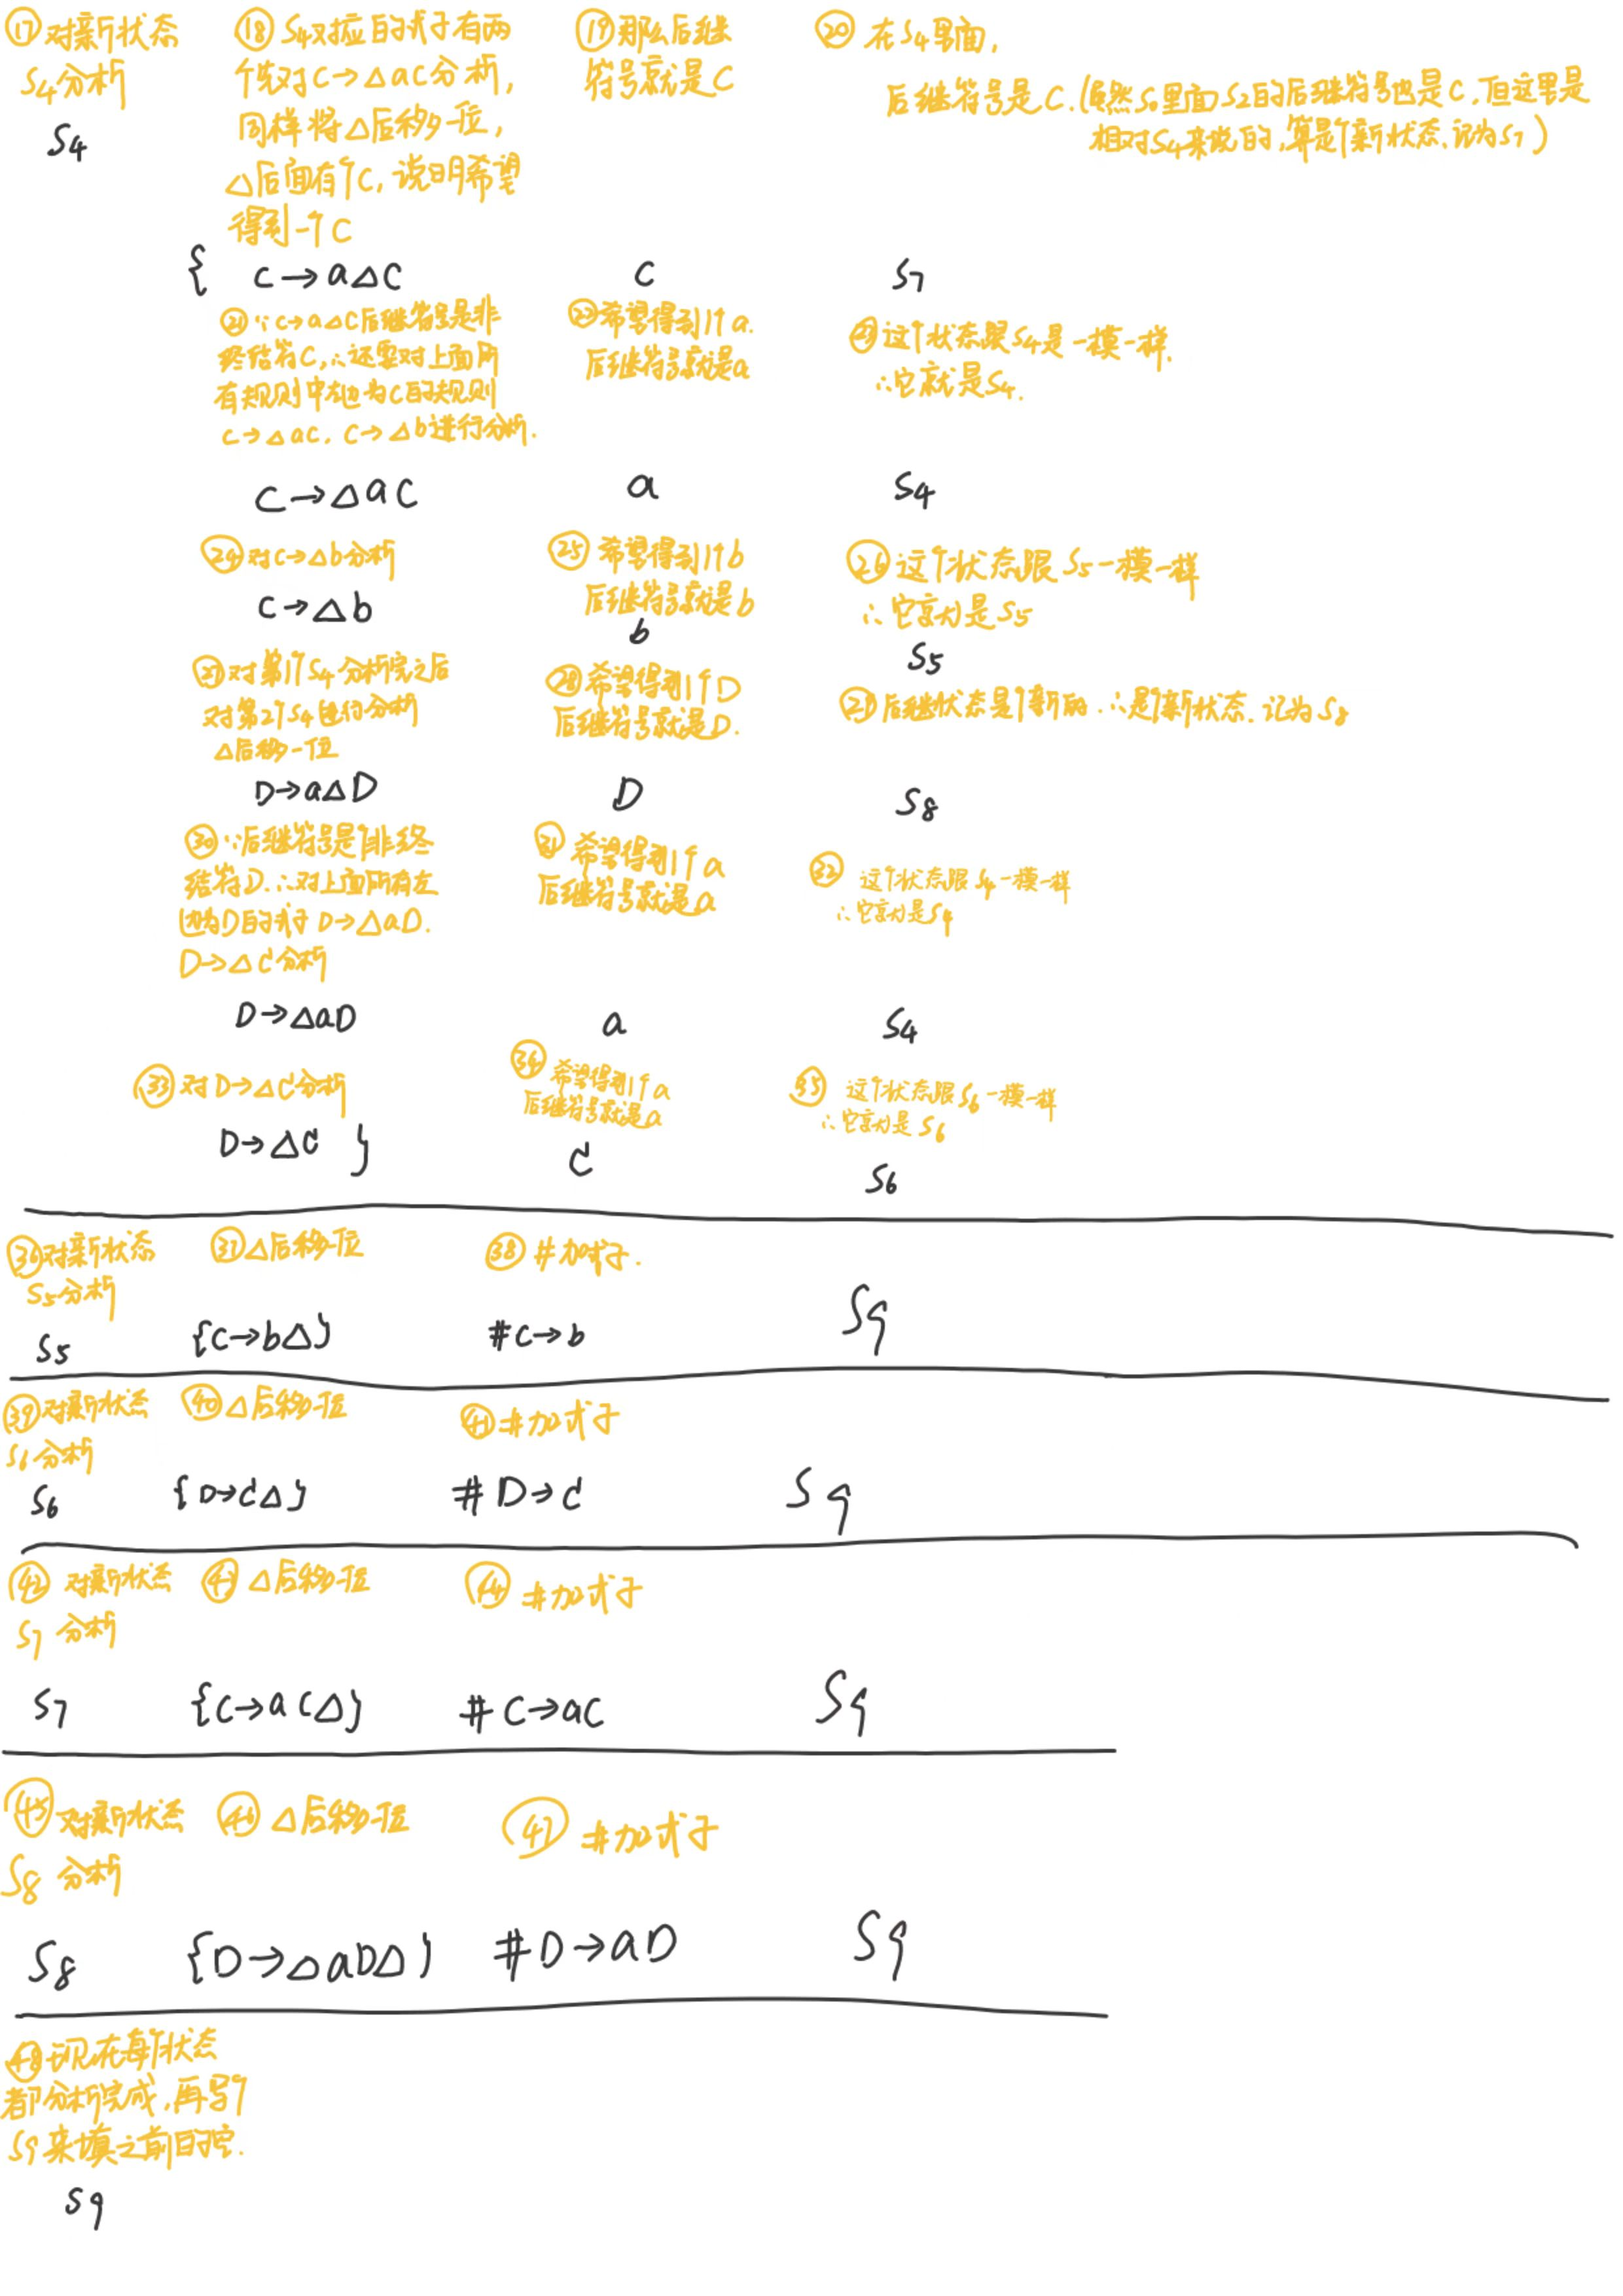 ⑰对新状态
S4分析
S4
⑱S4对应的式子有两
个先对C→△aC分析,
同样将△后移一位,
△后面有个C,说明希望
得到一个C
⑲那么后继
符号就是C
⑳在S4里面,
后继符号是C.(虽然S0里面S2的后继符号也是C,但这里是
相对S4来说的,算是个新状态、记为S7)
{ C→a△C
C
S7
㉑∵C→a△C后继符号是非
终结符C,∴还要对上面所
有规则中左边为C的规则
C→△aC. C→△b进行分析.
㉒希望得到1个a.
后继符号就是a
㉓这个状态跟S4是一模一样.
∴它就是S4.
C→△aC
a
S4
㉔对C→△b分析
C→△b
㉕希望得到1个b
后继符号就是b
b
㉖这个状态跟S5一模一样
∴它就是S5
S5
㉗对第1个S4分析完之后
对第2个S4进行分析
△后移一位
㉘希望得到1个D
后继符号就是D.
㉙后继状态是个新的.∴是个新状态.记为S8
D→a△D
D
S8
㉚∵后继符号是个非终
结符D.∴对上面所有左
边为D的式子D→△aD.
D→△d分析
㉛希望得到1个a
后继符号就是a
㉜这个状态跟S4一模一样
∴它就是S4
D→△aD
a
S4
㉝对D→△d分析
D→△d }
㉞希望得到1个a
后继符号就是a
d
㉟这个状态跟S6一模一样
∴它就是S6
S6
㊱对新状态
S5分析
S5
㊲△后移一位
{C→b△}
㊳#加式子.
#C→b
S9
㊴对新状态
S6分析
S6
㊵△后移一位
{D→d△}
㊶#加式子
#D→d
S9
㊷对新状态
S7分析
S7
㊸△后移一位
{C→aC△}
㊹#加式子
#C→aC
S9
㊺对新状态
S8分析
S8
㊻△后移一位
{D→△aD△}
㊼#加式子
#D→aD
S9
㊽现在每个状态
都分析完成,再写个
S9来填之前的空.
S9